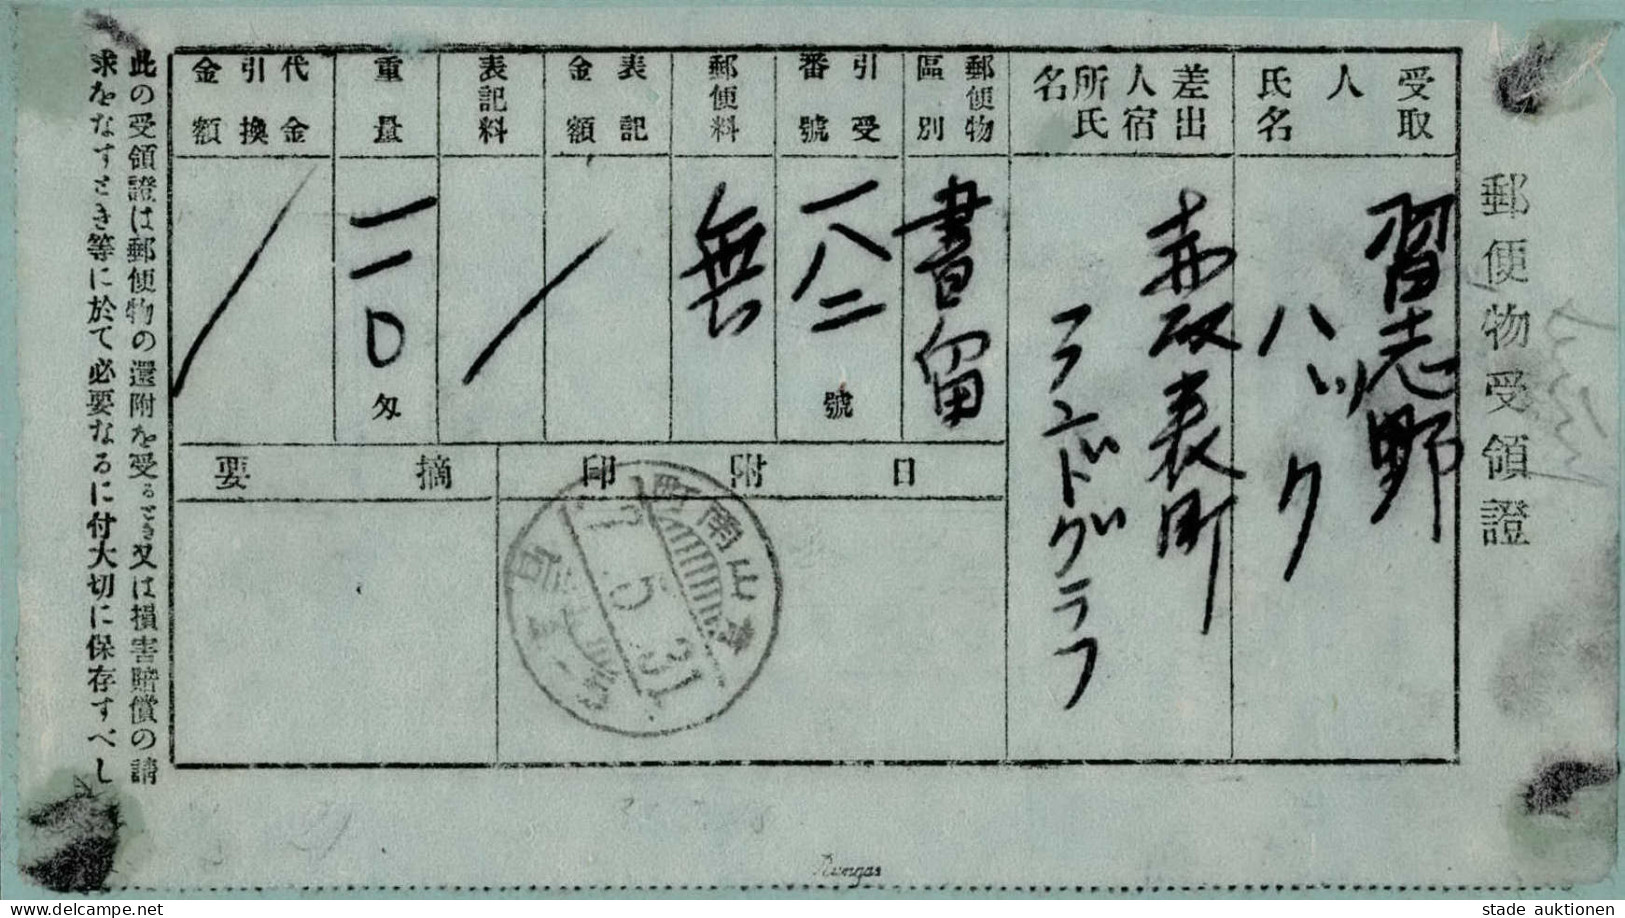 郵便物受領證
受取人氏名
習志野
ハック
差出人宿所氏名
赤坂表町
フンドグラフ
郵便物區別
書留
引受番號
一八二
號
郵便料
無
表記金額
表記料
重量
一一〇
匁
代金引換金額
日附印
摘要
青山南町
5
31
此の受領證は郵便物の還附を受るとき又は損害賠償の請
求をなすとき等に於て必要なるに付大切に保存すべし
stade auktionen